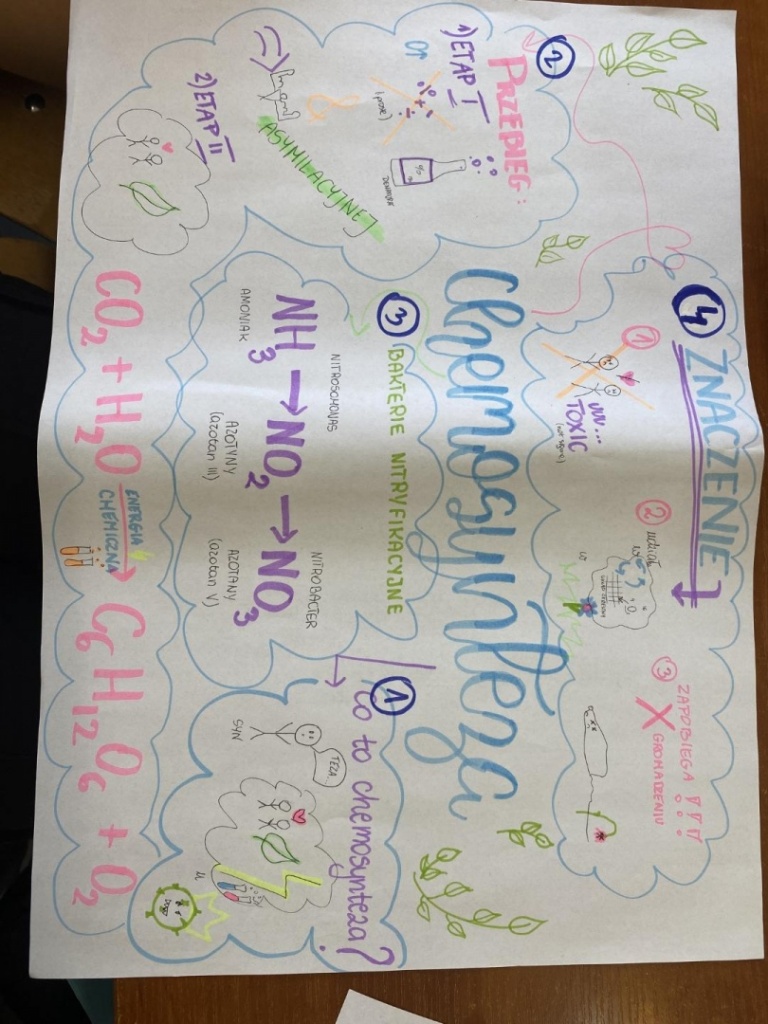 Chemosynteza
1
Co to chemosynteza?
SYN
TEZA
2
PRZEBIEG:
1) ETAP I
=>
ASYMILACYJNEJ
2) ETAP II
3
BAKTERIE NITRYFIKACYJNE
NITROSOMONAS
NITROBACTER
NH3 → NO2 → NO3
AMONIAK
AZOTYNY
AZOTANY
(azotan III)
(azotan V)
4
ZNACZENIE
1
TOXIC
2
udział
w
w
3
ZAPOBIEGA !!!
X GROMADZENIU
ENERGIA
CO2 + H2O → C6H12O6 + O2
CHEMICZNA